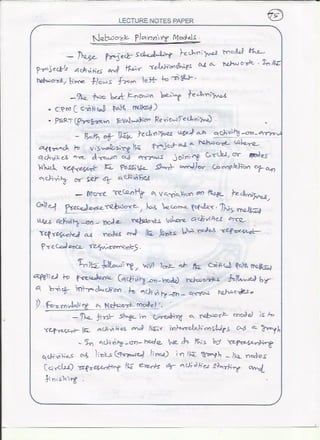 LECTURE NOTES PAPER
75
Network Planning Models
- These project scheduling techniques model the
project's activities and their relationships as a network. In the
network, time flows from left to right.
- The two best known being techniques
• CPM (Critical Path Method)
• PERT (Program Evaluation Review Technique)
- Both of these techniques used an activity-on-arrow
approach to visualizing the project as a network where
activities are drawn as arrows joining circles, or nodes
which represent the possible start and/or completion of an
activity or set of activities
- More recently a variation on these techniques,
called precedence network, has become popular. This method
uses activity-on-node networks where activities are
represented as nodes and the links b/w nodes represent
precedence requirements.
In the following, will look at the Critical path method
applied to precedence (activity-on-node) networks followed by
a brief introduction to activity-on-arrow networks.
1) Formulating a Network model:
- The first stage in creating a network model is to
represent the activities and their interrelationships as a graph
- In activity-on-node we do this by representing
activities as links (arrowed lines) in the graph - the nodes
(circles) representing the events of activities starting and
finishing.